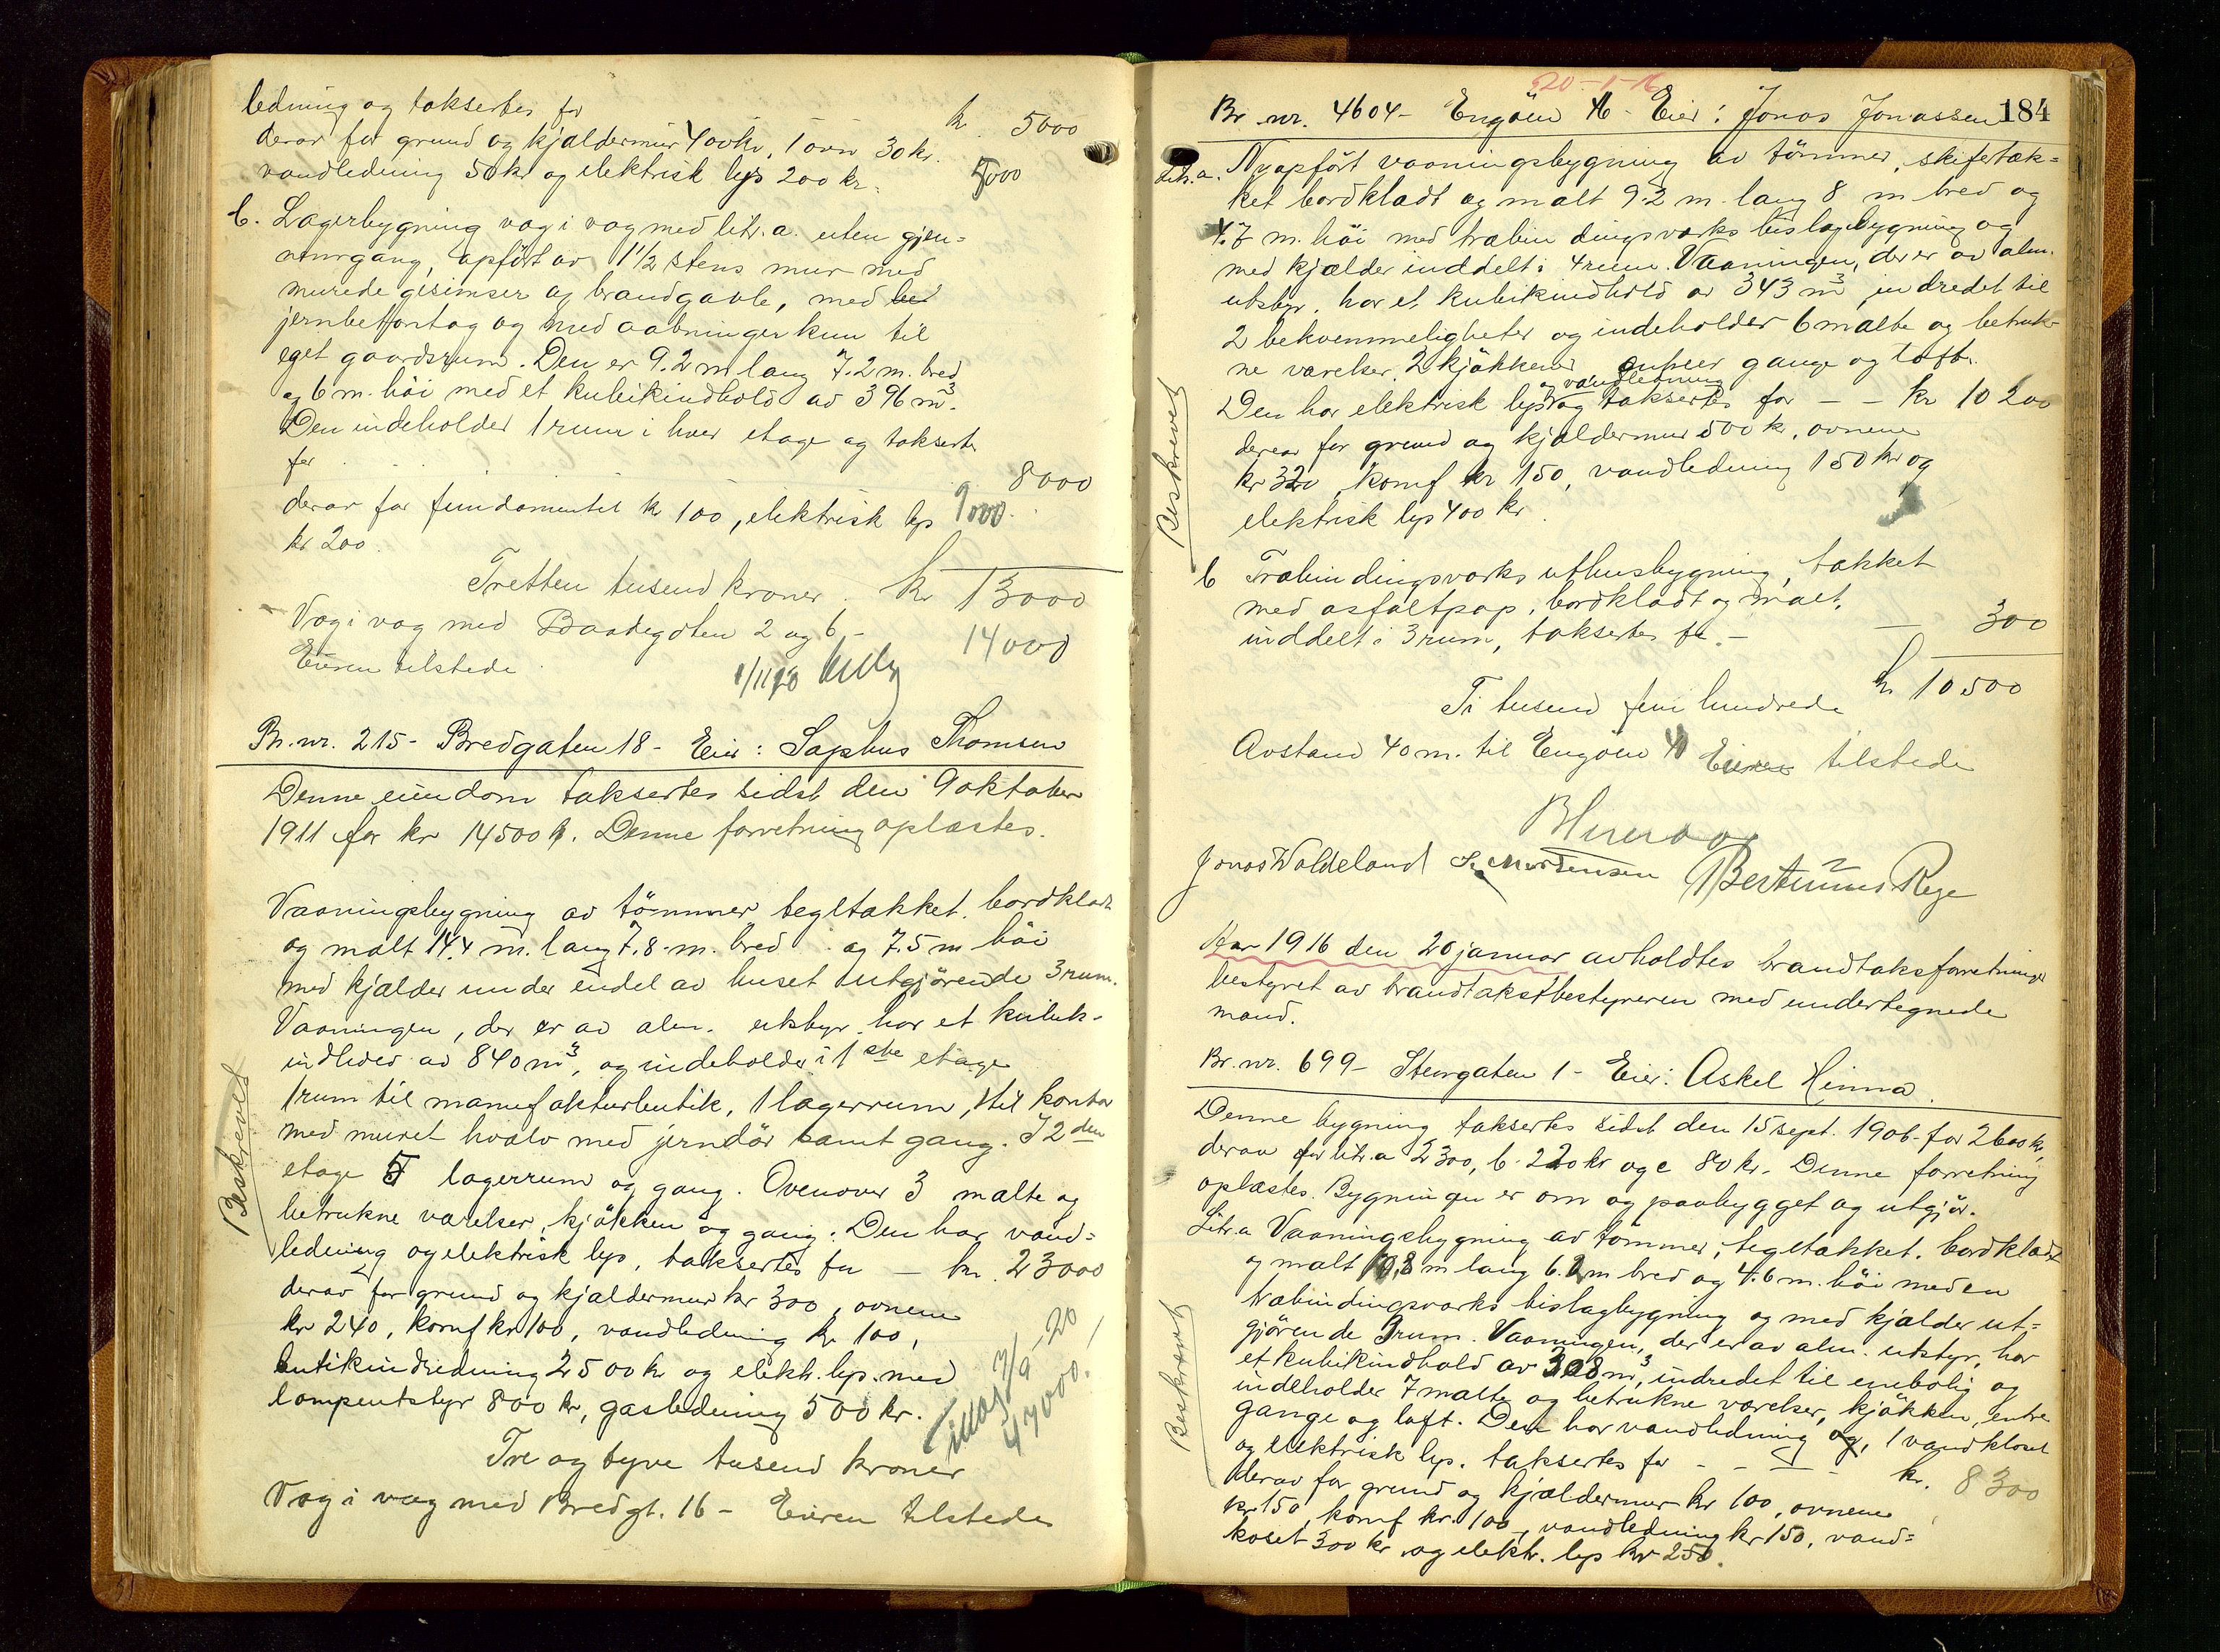 ledning og taksertes for kr 5000
derav for grund og kjældermur 400 kr, 1 ovn 30 kr.
vandledning 50 kr og elektrisk lys 200 kr. 5000
b. Lagerbygning væg i væg med litr. a. uten gjen=
nemgang, opført av 1 1/2 stens mur med
murede gesimser og brandgavle, med
jernbetontag og med aabninger kun til
eget gaardsrum. Den er 9.2 m lang 7.2 m. bred
og 6 m. høi med et kubikindhold av 396 m³.
Den indeholder 1 rum i hver etage og takserts
for 8000
derav for fundamentet kr 100, elektrisk lys 9000
kr 200.
Tretten tusend kroner. kr 13000
Væg i væg med Baadegaten 2 og 6 - 14000
Eieren tilstede. 1/11 20
Br. nr. 215 - Bredgaten 18 - Eier: Sophus Thomsen
Denne eiendom taksertes sidst den 9 oktober
1911 for kr 14500 kr. Denne forretning oplæstes.
Vaaningsbygning av tömmer tegltækket. bordklædt
og malt 14.4 m. lang 7.8 m. bred og 7.5 m høi
med kjælder under endel av huset utgjörende 3 rum.
Vaaningen, der er av alm. utstyr har et kubik-
indhold av 840 m³, og indeholder i 1ste etage
1 rum til manufakturbutik, 1 lagerrum, 1 til kontor
med muret hvælv med jerndör samt gang. I 2den
etage 5 lagerrum og gang. Ovenover 3 malte og
betrukne værelser, kjökken og gang. Den har vand=
ledning og elektrisk lys, taksertes for - kr. 23000
derav for grund og kjældermur kr 300, ovnene
kr 240, komf kr 100, vandledning kr 100,
butikindredning 2500 kr og elekt. lys. med
lampeutstyr 800 kr, gasledning 500 kr.
Beskrevet
Tillæg 7/9-20
47000.-
Tre og tyve tusend kroner
Væg i væg med Bredgt. 16 - Eieren tilstede
20-1-16
184
Br. nr. 4604 - Engöen - Eier: Jonas Jonassen
Litr. a. Nyopfört vaaningsbygning av tömmer, skifertæk=
ket bordklædt og malt 9.2 m. lang 8 m bred og
4.7 m. høi med træbindingsværks bislagbygning og
med kjælder inddelt i 4 rum. Vaaningen, der er av alm.
utstyr. har et kubikindhold av 343 m³ indredet til
2 bekvemmeligheter og indeholder 6 malte og betruk-
ne værelser, 2 kjökkener, entreer gange og loft.
og vandledning
Den har elektrisk lys og taksertes for - - kr 10 200
derav for grund og kjældermur 500 kr, ovnene
kr 320, komf kr 150, vandledning 150 kr og
elektrisk lys 400 kr.
Beskrevet
b Træbindingsværks uthusbygning, tækket
med asfaltpap, bordklædt og malt,
inddelt i 3 rum, taksertes for. - 300
kr 10500
Ti tusend fem hundrede
Avstand 40 m. til Engöen Eieren tilstede
Jonas Waldeland S. Mortensen Bertinius Rege
Aar 1916 den 20 januar avholdtes brandtaksforretninger
bestyret av brandtakstbestyreren med undertegnede
mænd.
Br. nr. 699 - Stengaten 1 - Eier: Askel Hinna.
Denne bygning taksertes sidst den 15 sept. 1906 - for 2600 kr,
derav for litr. a 2300, b. 220 kr og c 80 kr. Denne forretning
oplæstes. Bygningen er om og paabygget og utgjör.
Litr. a Vaaningsbygning av tömmer, tegltækket. bordklædt
og malt 10,8 m lang 6.2 m bred og 4.6 m. höi med en
træbindingsværks bislagbygning og med kjælder ut=
gjörende 3 rum. Vaaningen, der er av alm. utstyr, har
et kubikindhold av 308 m³, indredet til enebolig og
indeholder 7 malte og betrukne værelser, kjökken, entre
gange og loft. Den har vandledning, 1 vandkloset
og elektrisk lys. taksertes for - - - - kr. 8300
derav for grund og kjældermur kr 100, ovnene
kr 150, komf kr. 100, vandledning kr 150, vand=
koset 300 kr og elektr. lys kr 250.
Beskrevet